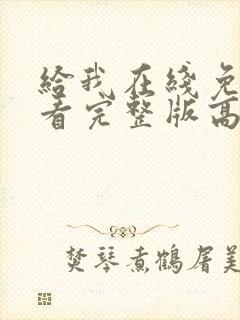 给我在线免
看完整版高
焚琴煮鹤屠美